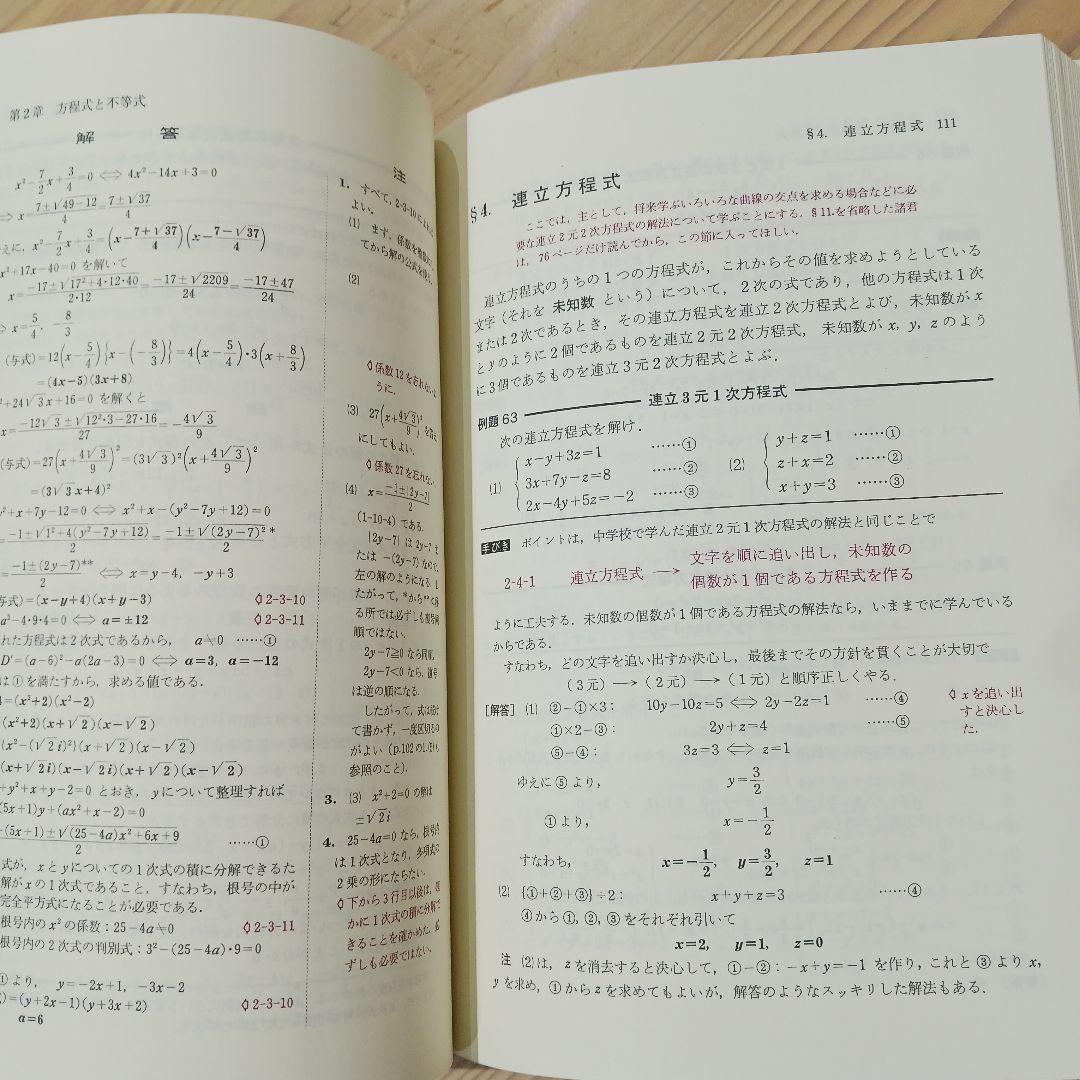 第2章 方程式と不等式
解 答
x²-7/2x+3/4=0 ⇔ 4x²-14x+3=0
x=(7±√49-12)/4=(7±√37)/4
x²-7/2x+3/4=(x-(7+√37)/4)(x-(7-√37)/4)
x²+17x-40=0 を解いて
x=(-17±√17²+4・12・40)/(2・12)=(-17±√2209)/24=(-17±47)/24
x=5/4, -8/3
(与式)=12(x-5/4){x-(-8/3)}=4(x-5/4)・3(x+8/3)
=(4x-5)(3x+8)
+24√3x+16=0 を解くと
x=(-12√3±√12²・3-27・16)/27=-4√3/9
(与式)=27(x+4√3/9)²=(3√3)²(x+4√3/9)²
=(3√3x+4)²
+x+7y-12=0 ⇔ x²+x-(y²-7y+12)=0
=(-1±√1²+4(y²-7y+12))/2=(-1±√(2y-7)²)/2*
=(-1±(2y-7))/2** ⇔ x=y-4, -y+3
与式)=(x-y+4)(x+y-3) ◊2-3-10
a²-4・9・4=0 ⇔ a=±12 ◊2-3-11
れた方程式は2次式であるから, a≠0 ……①
D′=(a-6)²-a(2a-3)=0 ⇔ a=3, a=-12
は①を満たすから, 求める値である.
=(x²+2)(x²-2)
(x²+2)(x+√2)(x-√2)
{x²-(√2i)²}(x+√2)(x-√2)
(x+√2i)(x-√2i)(x+√2)(x-√2)
+y²+x+y-2=0 とおき, yについて整理すれば
(5x+1)y+(ax²+x-2)=0
-(5x+1)±√(25-4a)x²+6x+9/2 ……①
式が, xとyについての1次式の積に分解できるた
解がxの1次式であること, すなわち, 根号の中が
完全平方式になることが必要である.
根号内のx²の係数:25-4a≠0 ◊2-3-11
根号内の2次式の判別式:3²-(25-4a)・9=0
①より, y=-2x+1, -3x-2
)=(y+2x-1)(y+3x+2) ◊2-3-10
a=6
注
1. すべて, 2-3-10に
よい.
(1) まず, 係数を
てから解の公式を
(2)
◊係数12を忘れない
うに.
(3) 27(x+4√3/9)²
にしてもよい.
◊係数27を忘れ
(4) x=(-1±|2y-7|)/2
(1-10-4) である.
|2y-7| は 2y-7 ま
たは -(2y-7) なので,
左の解のようになる.
たがって, *から**
る所では必ずしも複号
順ではない.
2y-7≧0 なら同順,
2y-7<0 なら, 複号
は逆の順になる.
したがって, 式は
て書かず, 一度区切るの
がよい (p.102の
参照のこと).
3. (3) x²+2=0 の解は
±√2i
4. 25-4a=0 なら, 根号内
は1次式となり, 多項式の
2乗の形にならない.
◊下から3行目以後は,
かに1次式の積に分解で
きることを確かめた. 必
ずしも必要ではない.
§4. 連立方程式 111
§4. 連立方程式
ここでは, 主として, 将来学ぶいろいろな曲線の交点を求める場合などに必
要な連立2元2次方程式の解法について学ぶことにする. §11.を省略した諸君
は, 76ページだけ読んでから, この節に入ってほしい.
連立方程式のうちの1つの方程式が, これからその値を求めようとしている
文字(それを 未知数 という)について, 2次の式であり, 他の方程式は1次
または2次であるとき, その連立方程式を連立2次方程式とよび, 未知数がx
とyのように2個であるものを連立2元2次方程式, 未知数がx, y, zのよう
に3個であるものを連立3元2次方程式とよぶ.
例題63 連立3元1次方程式
次の連立方程式を解け.
(1) x-y+3z=1 ……①
3x+7y-z=8 ……②
2x-4y+5z=-2 ……③
(2) y+z=1 ……①
z+x=2 ……②
x+y=3 ……③
手びき ポイントは, 中学校で学んだ連立2元1次方程式の解法と同じことで
2-4-1 連立方程式 → 文字を順に追い出し, 未知数の
個数が1個である方程式を作る
ように工夫する. 未知数の個数が1個である方程式の解法なら, いままでに学んでいる
からである.
すなわち, どの文字を追い出すか決心し, 最後までその方針を貫くことが大切で
(3元) → (2元) → (1元) と順序正しくやる.
[解答] (1) ②-①×3: 10y-10z=5 ⇔ 2y-2z=1 ……④
①×2-③: 2y+z=4 ……⑤
⑤-④: 3z=3 ⇔ z=1
◊ xを追い出
すと決心し
た.
ゆえに⑤より, y=3/2
①より, x=-1/2
すなわち, x=-1/2, y=3/2, z=1
(2) {①+②+③}÷2: x+y+z=3 ……④
④から①, ②, ③をそれぞれ引いて
x=2, y=1, z=0
注 (2)は, zを消去すると決心して, ①-②:-x+y=-1 を作り, これと③よりx,
yを求め, ①からzを求めてもよいが, 解答のようなスッキリした解法もある.